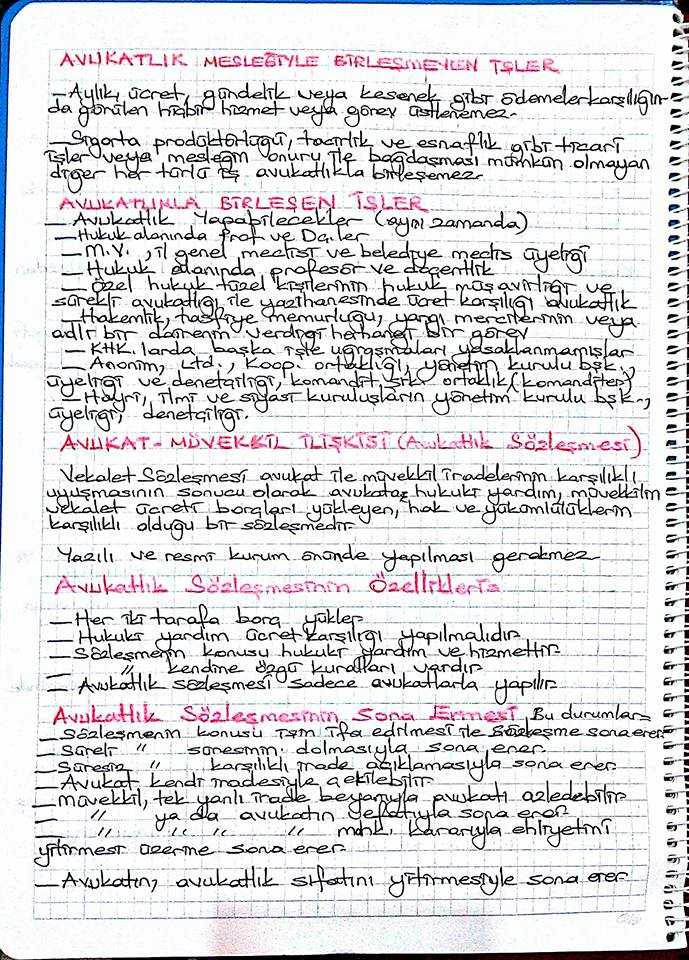 AVUKATLIK MESLEĞİYLE BİRLEŞMEYEN İŞLER
— Aylık, ücret, gündelik veya kesenek gibi ödemeler karşılığın-
da görülen hiçbir hizmet veya görev üstlenemez.
— Sigorta prodüktörlüğü, tacirlik ve esnaflık gibi ticari
işler veya mesleğin onuru ile bağdaşması mümkün olmayan
diğer her türlü iş avukatlıkla birleşemez.
AVUKATLIKLA BİRLEŞEN İŞLER
— Avukatlık Yapabilecekler (aynı zamanda)
— Hukuk alanında Prof ve Doç.ler
— M.V., il genel meclisi ve belediye meclis üyeliği
— Hukuk alanında profesör ve doçentlik
— Özel hukuk tüzel kişilerinin hukuk müşavirliği ve
sürekli avukatlığı ile yazıhanesinde ücret karşılığı avukatlık
— Hakemlik, tasfiye memurluğu, yargı mercilerinin veya
adli bir dairenin verdiği herhangi bir görev
— KHK.larda başka işle uğraşmaları yasaklanmamışlar
— Anonim, Ltd., Koop. ortaklığı, yönetim kurulu bşk.,
üyeliği ve denetçiliği, komandit şrk. ortaklık (komanditer)
— Hayri, ilmi ve siyasi kuruluşların yönetim kurulu bşk.,
üyeliği, denetçiliği.
AVUKAT - MÜVEKKİL İLİŞKİSİ (Avukatlık Sözleşmesi)
Vekalet Sözleşmesi avukat ile müvekkil iradelerinin karşılıklı
uyuşmasının sonucu olarak avukata; hukuki yardım, müvekkilin
vekalet ücreti borçları yükleyen, hak ve yükümlülüklerin
karşılıklı olduğu bir sözleşmedir
Yazılı ve resmi kurum önünde yapılması gerekmez.
Avukatlık Sözleşmesinin Özellikleri:
— Her iki tarafa borç yükler
— Hukuki yardım ücret karşılığı yapılmalıdır.
— Sözleşmenin konusu hukuki yardım ve hizmettir.
— " kendine özgü kuralları vardır.
— Avukatlık sözleşmesi sadece avukatlarla yapılır.
Avukatlık Sözleşmesinin Sona Ermesi Bu durumlar=
— Sözleşmenin konusu işin ifa edilmesi ile sözleşme sona erer.
— Süreli " süresinin dolmasıyla sona erer.
— Süresiz " karşılıklı irade açıklamasıyla sona erer.
— Avukat kendi iradesiyle çekilebilir
— Müvekkil, tek yanlı irade beyanıyla avukatı azledebilir
— " ya da avukatın vefatıyla sona erer
— " " " " mahk. kararıyla ehliyetini
yitirmesi üzerine sona erer.
— Avukatın, avukatlık sıfatını yitirmesiyle sona erer.